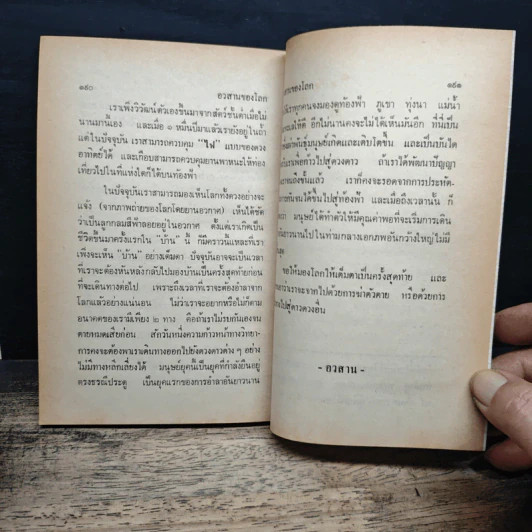 ๑๙๐
อวสานของโลก
เราเพิ่งวิวัฒน์ตัวเองขึ้นมาจากสัตว์ชั้นต่ำเมื่อไม่
นานมานี้เอง และเมื่อ ๑ หมื่นปีมาแล้วเรายังอยู่ในถ้ำ
แต่ในปัจจุบัน เราสามารถควบคุม "ไฟ" แบบของดวง
อาทิตย์ได้ และเกือบสามารถควบคุมยานพาหนะให้ท่อง
เที่ยวไปในที่แห่งใดก็ได้บนท้องฟ้า
ในปัจจุบันเราสามารถมองเห็นโลกทั้งดวงอย่างชัด
แจ้ง (จากภาพถ่ายของโลกโดยยานอวกาศ) เห็นได้ชัด
ว่าเป็นลูกกลมสีฟ้าลอยอยู่ในอวกาศ ตั้งแต่เราเกิดเป็น
ชีวิตขึ้นมาครั้งแรกใน "บ้าน" นี้ ก็มีคราวนี้แหละที่เรา
เพิ่งจะเห็น "บ้าน" อย่างเต็มตา ปัจจุบันอาจจะเป็นเวลา
ที่เราจะต้องหันหลังกลับไปมองบ้านเป็นครั้งสุดท้ายก่อน
ที่จะเดินทางต่อไป เพราะถึงเวลาที่เราจะต้องอำลาจาก
โลกแล้วอย่างแน่นอน ไม่ว่าเราจะอยากหรือไม่ก็ตาม
อนาคตของเรามีเพียง ๒ ทาง คือถ้าเราไม่รบกันเองจน
ตายหมดเสียก่อน สักวันหนึ่งความก้าวหน้าทางวิทยา-
การคงจะต้องพาเราเดินทางออกไปยังดวงดาวต่าง ๆ อย่าง
ไม่มีทางหลีกเลี่ยงได้ มนุษย์ยุคนี้เป็นยุคที่กำลังยืนอยู่
ตรงธรณีประตู เป็นยุคแรกของการอำลาอันยาวนาน
๑๙๑
ของโลก
ทุกคนจงมองดูท้องฟ้า ภูเขา ทุ่งนา แม่น้ำ
ให้ดี อีกไม่นานคงจะไม่ได้เห็นมันอีก ที่นี่เป็น
พันธุ์มนุษย์เกิดและเติบโตขึ้น และเป็นบันได
เราเพื่อก้าวไปสู่ดวงดาว ถ้าเราได้พัฒนาปัญญา
ถึงขั้นแล้ว เราก็คงจะรอดจากการประหัต-
กันจนได้ขึ้นไปสู่ท้องฟ้า และเมื่อถึงเวลานั้น ก็
ว่า มนุษย์ได้ทำตัวให้มีคุณค่าพอที่จะเริ่มการเดิน
ยาวนานไปในท่ามกลางเอกภพอันกว้างใหญ่ไม่มี
สุด
ขอให้มองโลกให้เต็มตาเป็นครั้งสุดท้าย และ
ว่าเราจะจากไปด้วยการฆ่าตัวตาย หรือด้วยการ
ไปสู่ดาวดวงอื่น
- อวสาน -